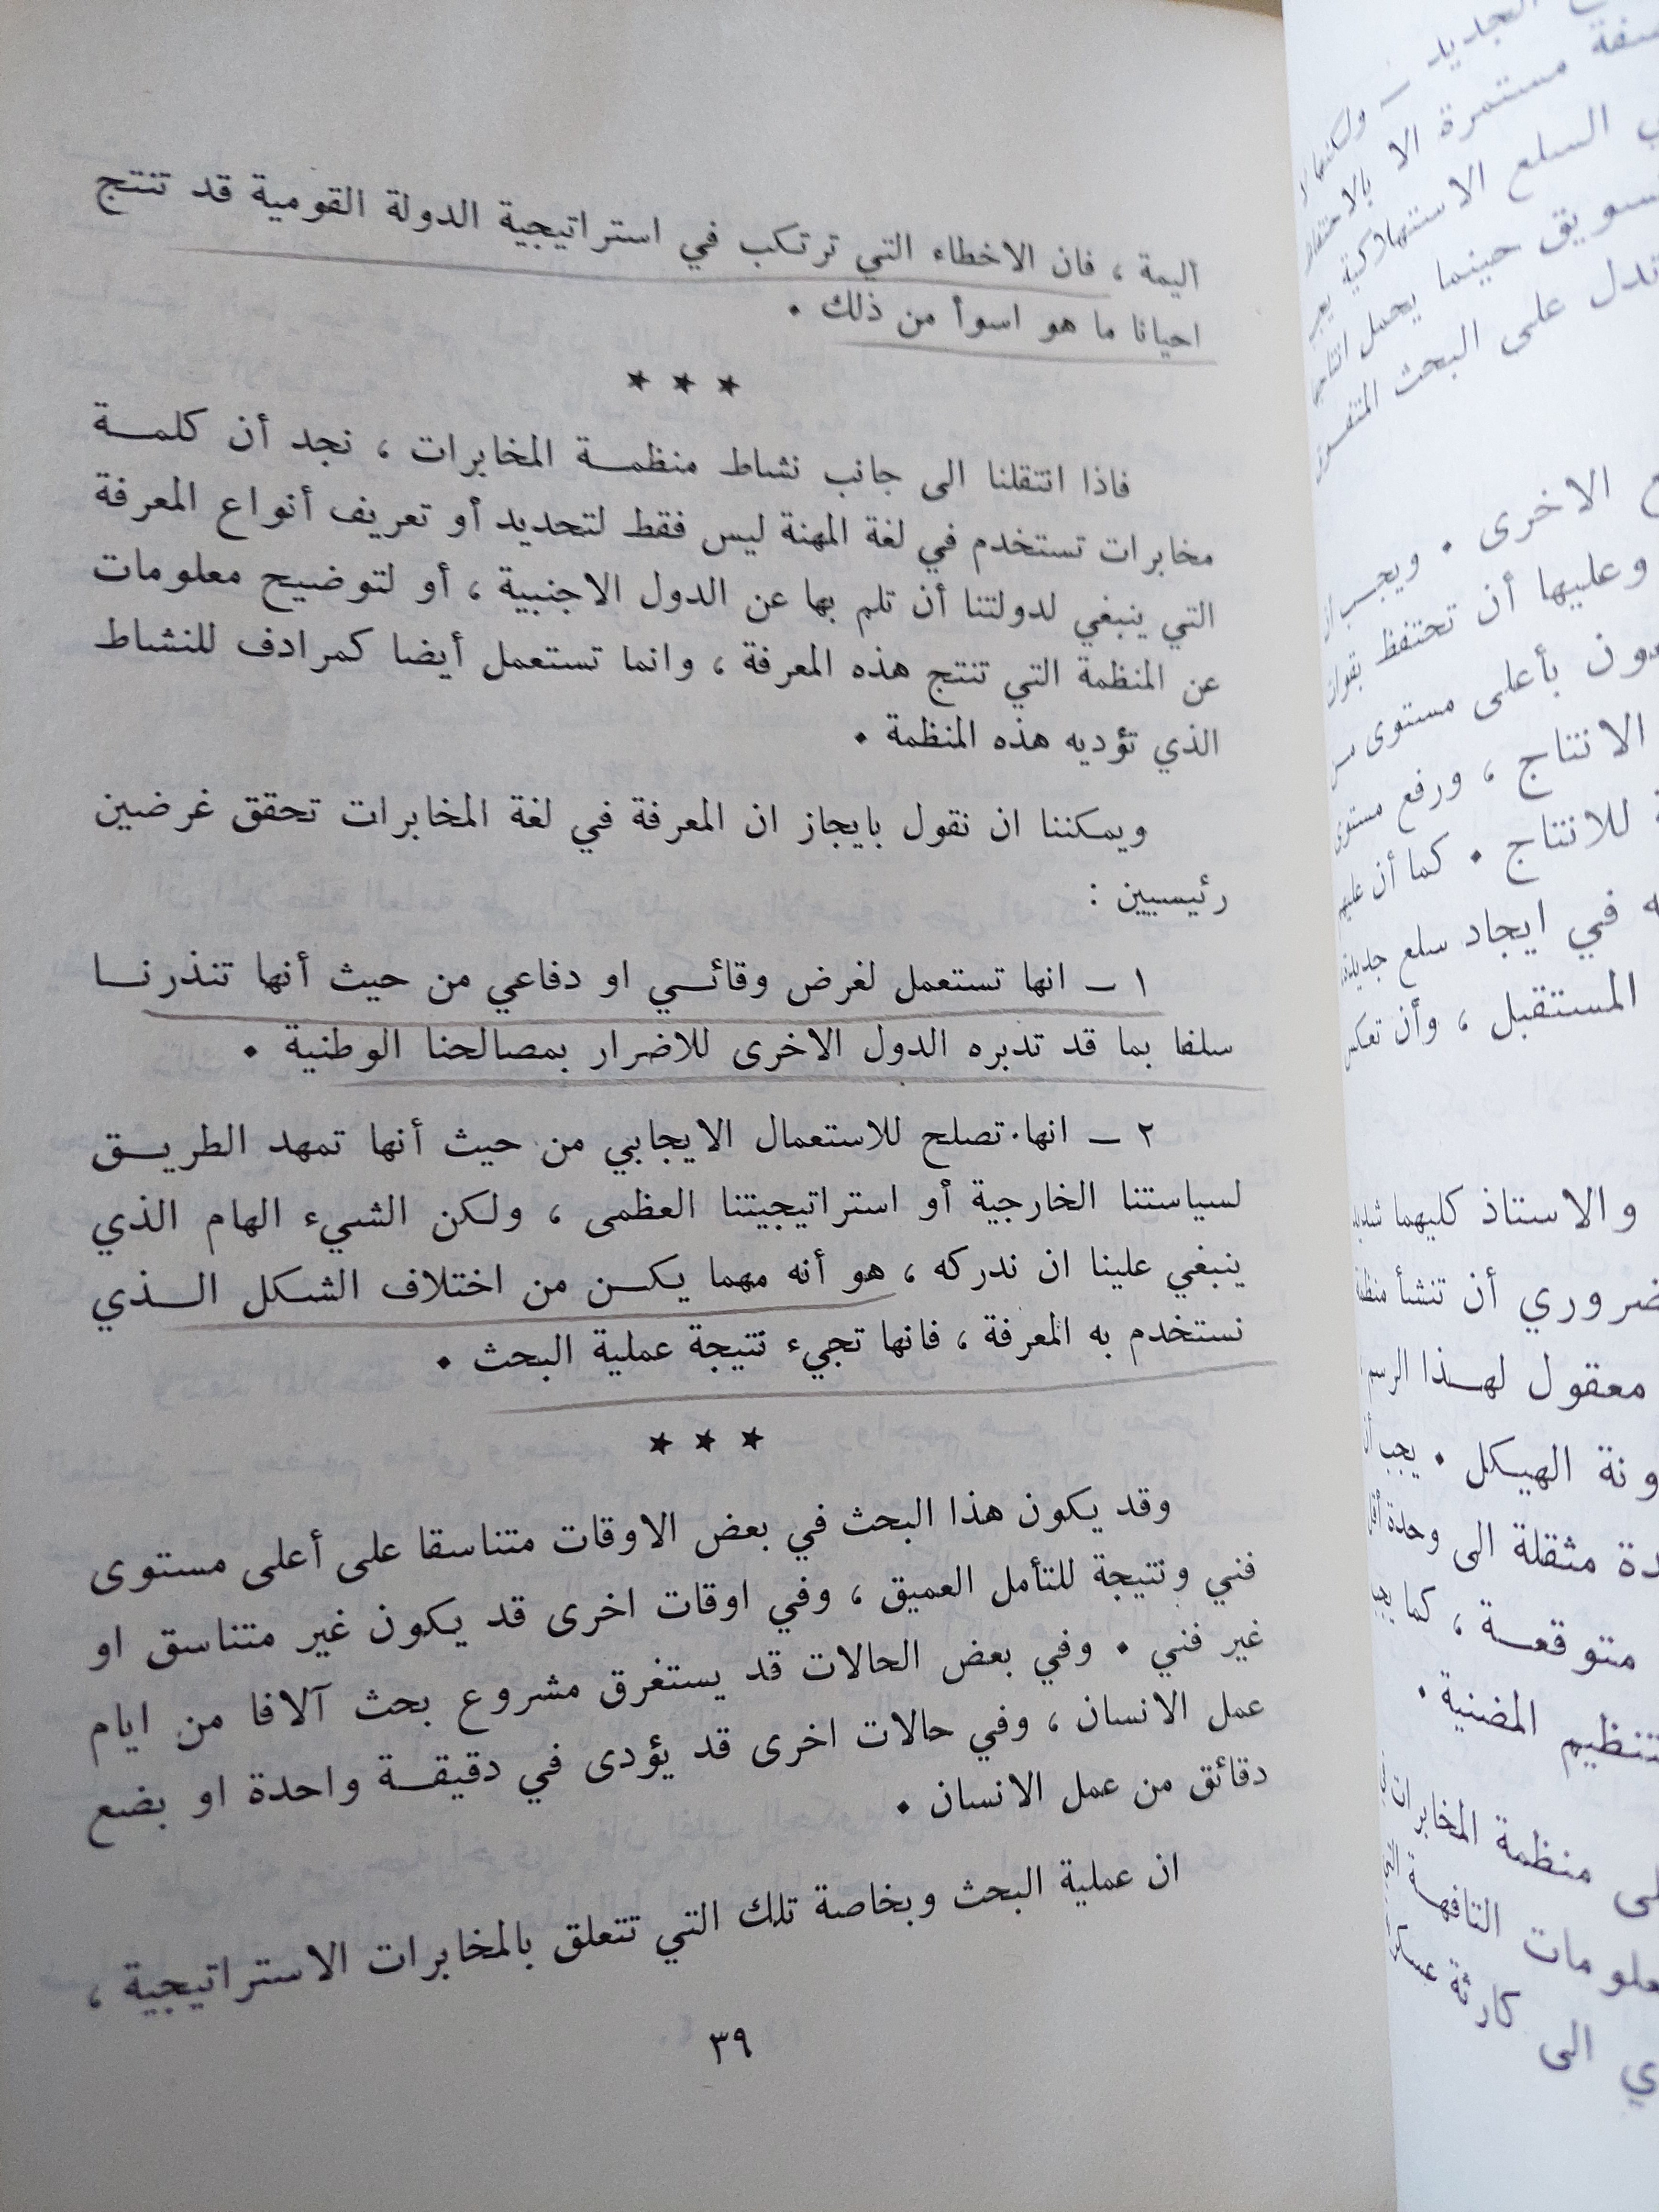 اليمة ، فان الاخطاء التي ترتكب في استراتيجية الدولة القومية قد تنتج
احيانا ما هو اسوأ من ذلك .
★ ★ ★
فاذا انتقلنا الى جانب نشاط منظمــة المخابرات ، نجد أن كلمــة
مخابرات تستخدم في لغة المهنة ليس فقط لتحديد أو تعريف أنواع المعرفة
التي ينبغي لدولتنا أن تلم بها عن الدول الاجنبية ، أو لتوضيح معلومات
عن المنظمة التي تنتج هذه المعرفة ، وانما تستعمل أيضا كمرادف للنشاط
الذي تؤديه هذه المنظمة .
ويمكننا ان نقول بايجاز ان المعرفة في لغة المخابرات تحقق غرضين
رئيسيين :
١ ــ انها تستعمل لغرض وقائــي او دفاعي من حيث أنها تنذرنــا
سلفا بما قد تدبره الدول الاخرى للاضرار بمصالحنا الوطنية .
٢ ــ انها تصلح للاستعمال الايجابي من حيث أنها تمهد الطريــق
لسياستنا الخارجية أو استراتيجيتنا العظمى ، ولكن الشيء الهام الذي
ينبغي علينا ان ندركه ، هو أنه مهما يكــن من اختلاف الشكل الــذي
نستخدم به المعرفة ، فانها تجيء نتيجة عملية البحث .
★ ★ ★
وقد يكون هذا البحث في بعض الاوقات متناسقا على أعلى مستوى
فني ونتيجة للتأمل العميق ، وفي اوقات اخرى قد يكون غير متناسق او
غير فني . وفي بعض الحالات قد يستغرق مشروع بحث آلافا من ايام
عمل الانسان ، وفي حالات اخرى قد يؤدى في دقيقــة واحدة او بضع
دقائق من عمل الانسان .
ان عملية البحث وبخاصة تلك التي تتعلق بالمخابرات الاستراتيجية ،
٣٩
الجديد ــ ولكنها لا
مستمرة الا بالاحتفاظ
السلع الاستهلاكية
حينما يحمل
تدل على البحث
الاخرى . ويجب
وعليها أن تحتفظ
بأعلى مستوى
الانتاج ، ورفع مستوى
للانتاج . كما أن عليها
في ايجاد سلع جديدة
المستقبل ، وأن تعكس
والاستاذ كليهما
أن تنشأ
معقول لهــذا الرسم
الهيكل . يجب أن
مثقلة الى وحدة أقل
متوقعــة ، كما
المضنية .
منظمة المخابرات
التافهــة
الى كارثة